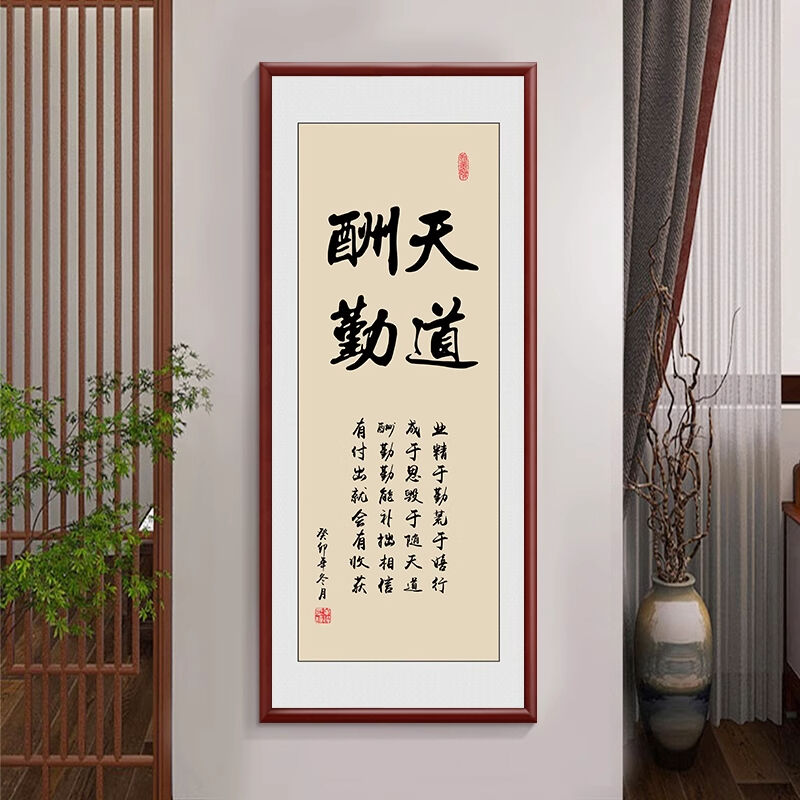 天道
酬勤
业精于勤荒于嬉行
成于思毁于随天道
酬勤勤能补拙相信
有付出就会有收获
癸卯年冬月